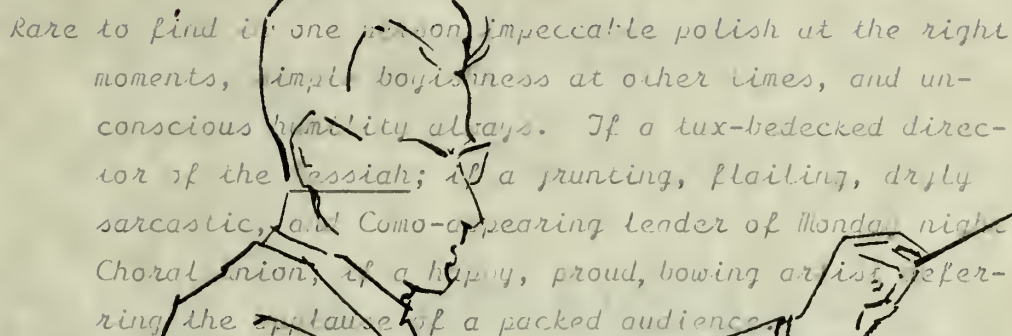 Rare to find in one person impeccable polish at the right
moments, simple boyishness at other times, and un-
conscious humility always. If a tux-bedecked direc-
tor of the Messiah; if a grunting, flailing, dryly
sarcastic, and Como-appearing leader of Monday night
Choral Union; if a happy, proud, bowing artist refer-
ring the applause of a packed audience.